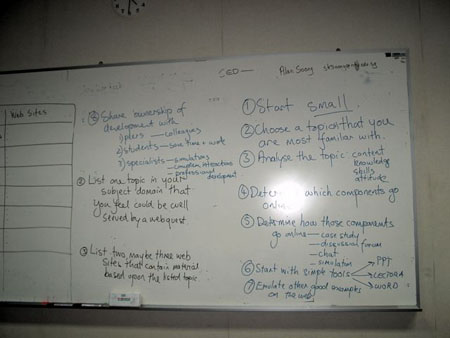 Web Sites
③ Share ownership of
development with
1) peers — colleagues
2) students — save time + work
3) specialists — simulations
— complex interactions
— professional development
② List one topic in your
subject domain that
you feel could be well
served by a webquest
③ List two, maybe three web
sites that contain material
based upon the listed topic
CED — Alan Soong
① Start small.
② Choose a topic that you
are most familiar with.
③ Analyse the topic content
knowledge
skills
attitude
④ Determine which components go
online
⑤ Determine how those components
go online — case study
— discussion forum
— chat
— simulation
⑥ Start with simple tools → PPT
→ LECTORA
→ WORD
⑦ Emulate other good examples
on the web